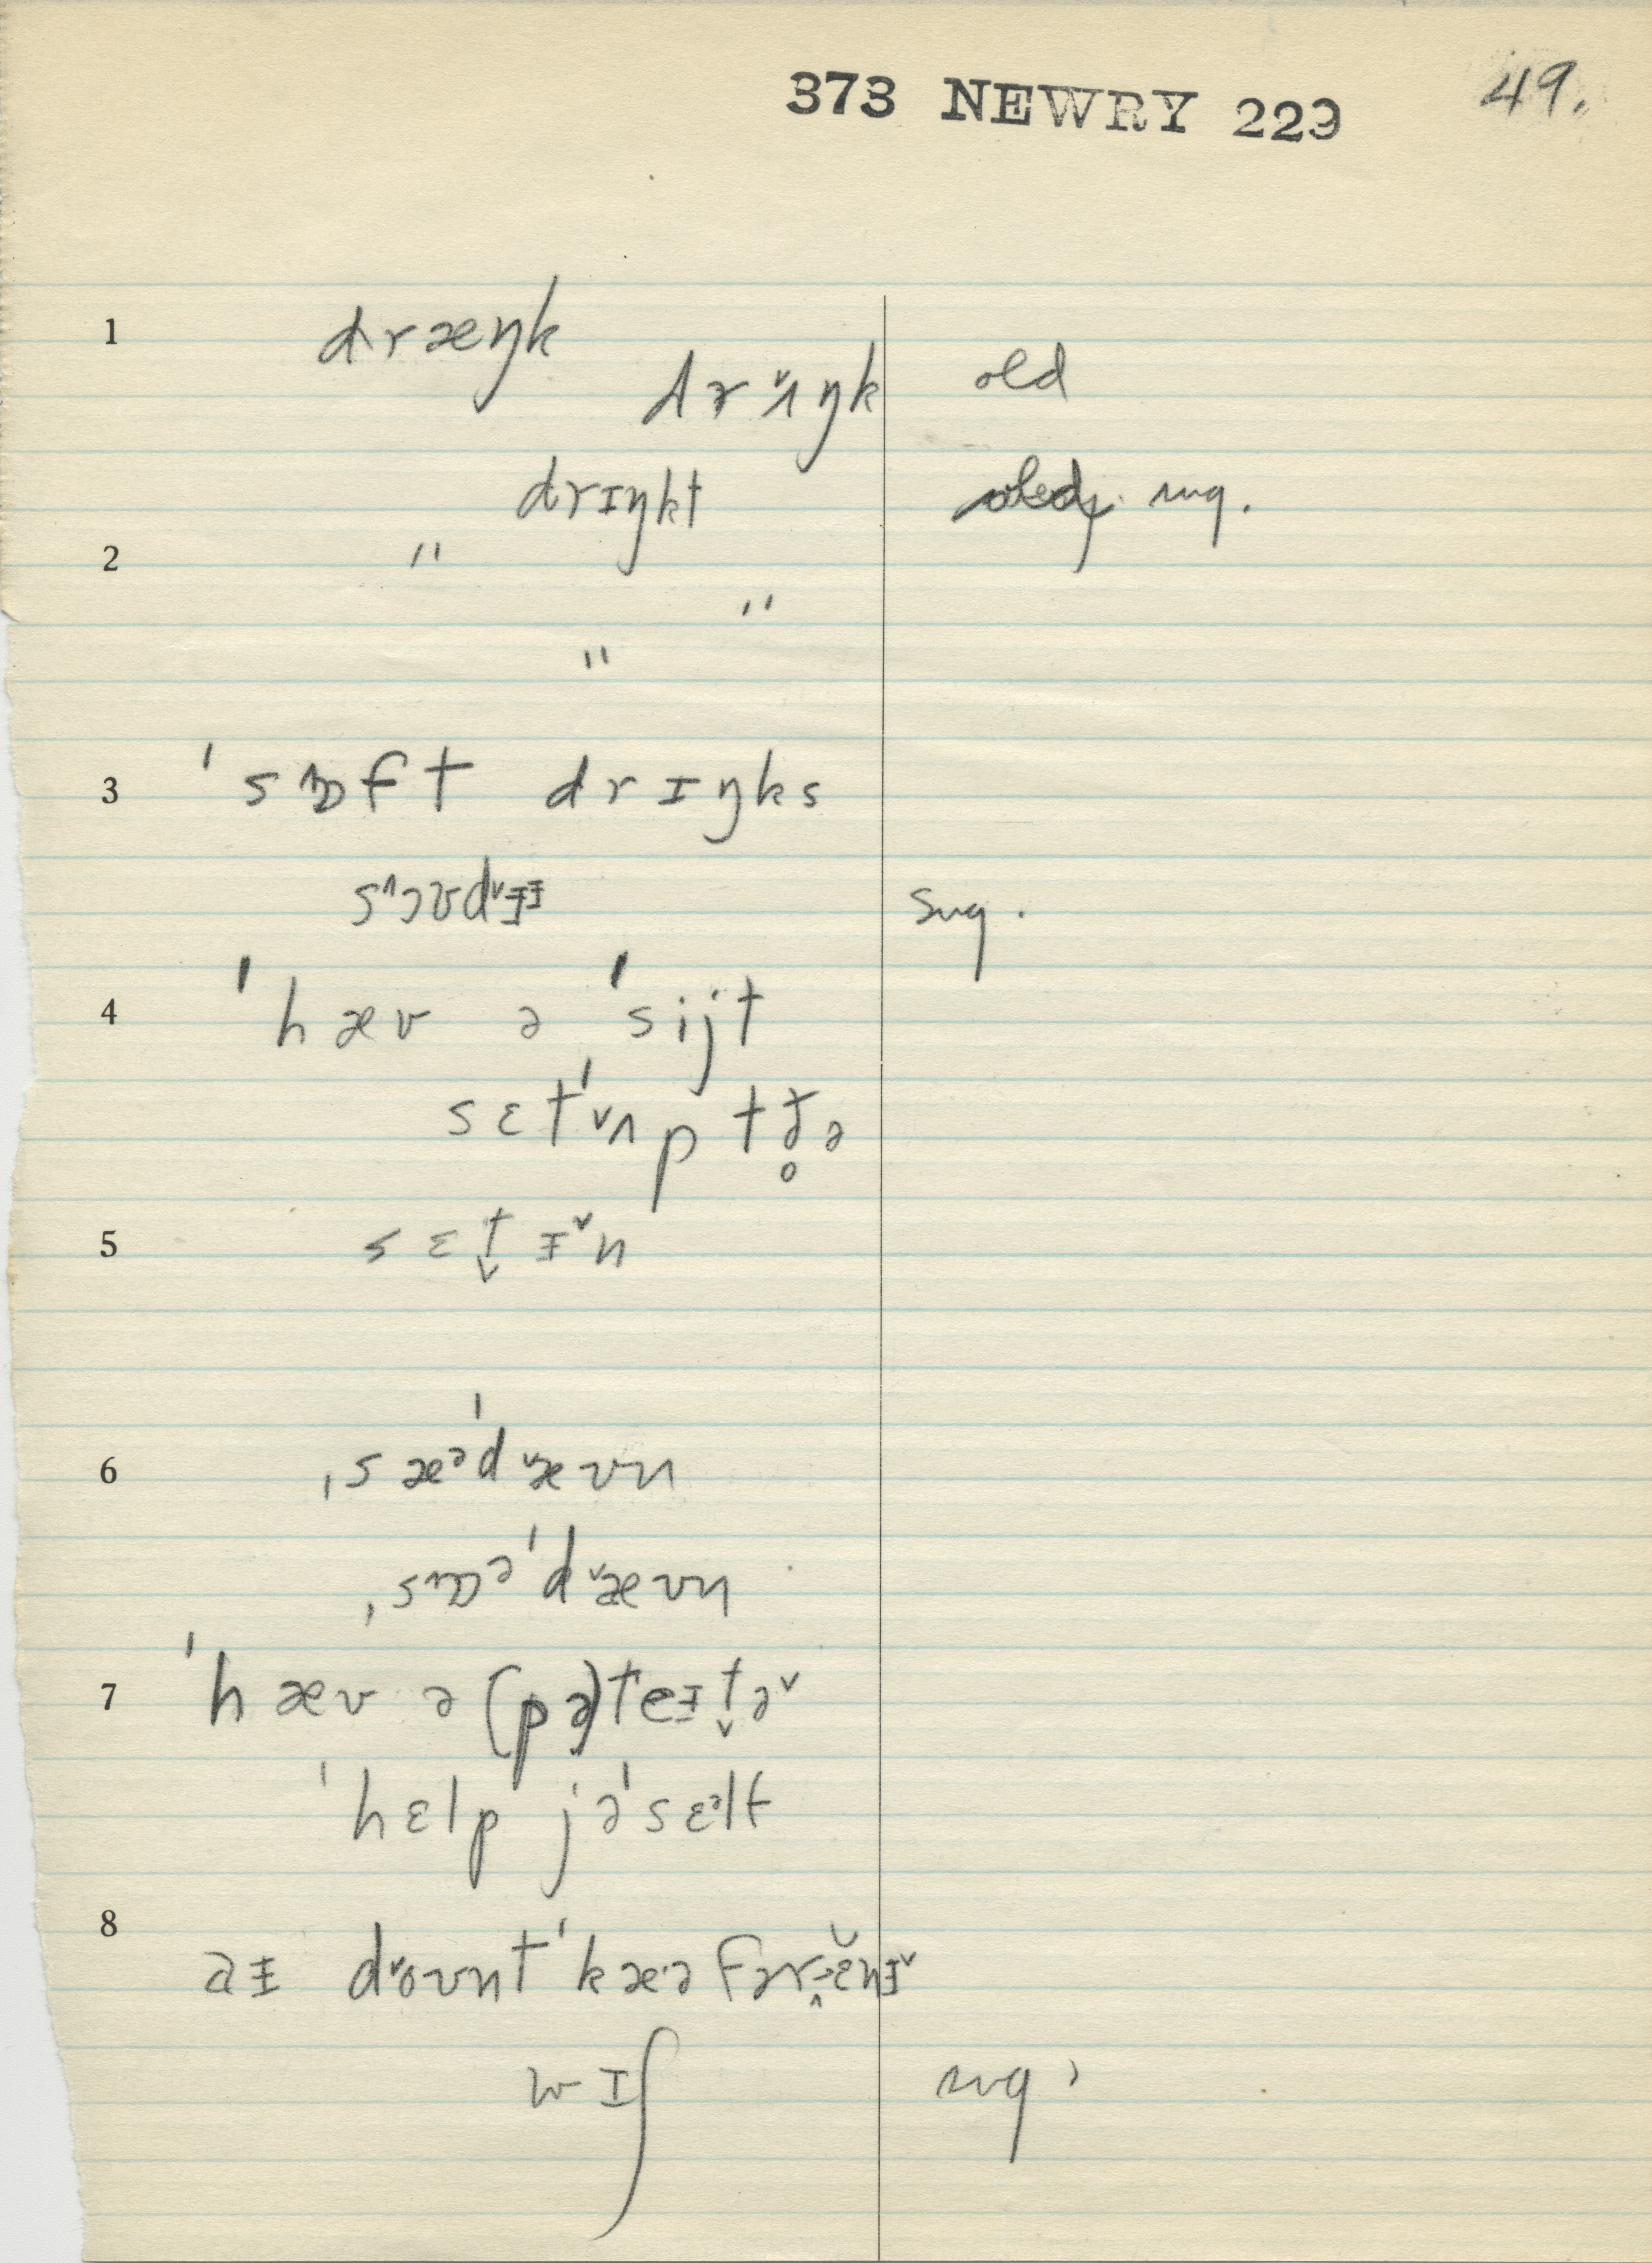 373 NEWRY 229 49.
1 dræŋk
drˇʌŋk old
drɪŋkt sug.
2 "
"
"
3 ˈsɒ^ft drɪŋks
s^ɔʊdˇɪ̵ɪ̵ sug.
4 ˈhæv ə ˈsijt
sɛtˈˇʌp tð̥ə
5 sɛt̬ ɪ̵ˇn
6 ˌsæᵊˈdˇæʊn
ˌsɒ^ᵊˈdˇæʊn
7 ˈhæv ə (pə)teɪ̵t̬əˇ
ˈhɛlp jəˈsɛᵊlf
8 aɪ̵ dˇoʊntˈkæ·ə
wɪʃ sug.